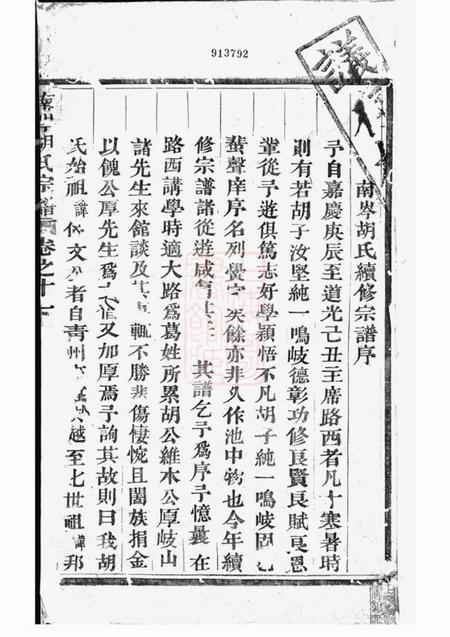 913792
議
南岑胡氏續修宗譜序
予自嘉慶庚辰至道光己丑主席路西者凡十寒暑時
則有若胡子汝堅純一鳴岐德彰功修良賢良賦良恩
輩從予遊俱篤志好學穎悟不凡胡子純一鳴岐固
蜚聲庠序名列黌宮矣餘亦非久作池中物也今年續
修宗譜諸從遊咸 其譜乞予為序予憶曩在
路西講學時適大路為葛姓所累胡公維木公厚岐山
諸先生來館談及其 輒不勝悲傷悽惋且闔族捐金
以餽公厚先生為 又加厚焉予詢其故則曰我胡
氏始祖諱 文 者自青州 越至七世祖諱邦
胡氏宗譜 卷之十一